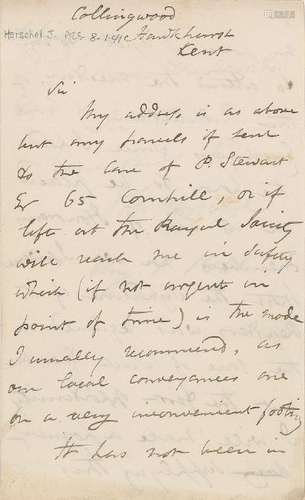 Collingwood
Herschel J. ALS 8.1.41C Hawkhurst
Kent
Sir
My address is as above
but any parcels if sent
to the care of P. Stewart
Esr 65 Cornhill, or if
left at the Royal Society
will reach me in safety
which (if not urgent in
point of time) is the mode
I usually recommend, as
our local conveyances are
on a very inconvenient footing
It has not been in